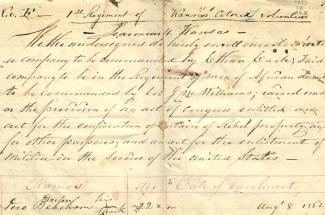 Co. F — 1st Regiment of Kansas Colored Volunteers
Leavenworth Kansas —
We the undersigned do hereby enroll ourselves into
a company to be commanded by Ethan Earle, Said
company to be in the Regiment of men of African descent
to be commanded by Col J M Williams, raised under
the provision of an act of Congress entitled an
act for the confiscation of certain of Rebel property, and
for other purposes, and an act for the enlistment of
Militia in the Service of the United States —
Names Age Date of enrolment
his
mark 22 Aug 8 1862